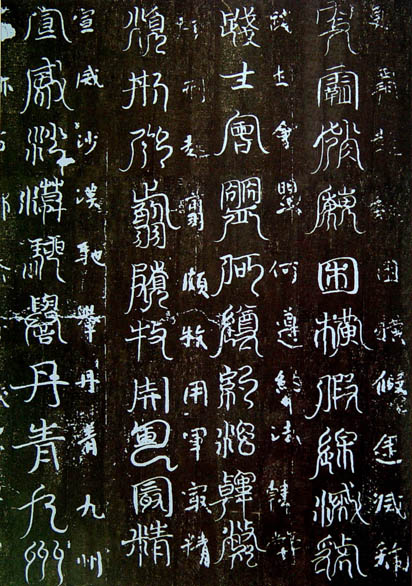 困橫假途滅虢
更霸趙魏困橫假途滅虢
踐土會盟何遵約法韓弊
踐土會盟何遵約法韓弊
煩刑起翦頗牧用軍最精
煩刑起翦頗牧用軍最精
宣威沙漠馳譽丹青九州
宣威沙漠馳譽丹青九州